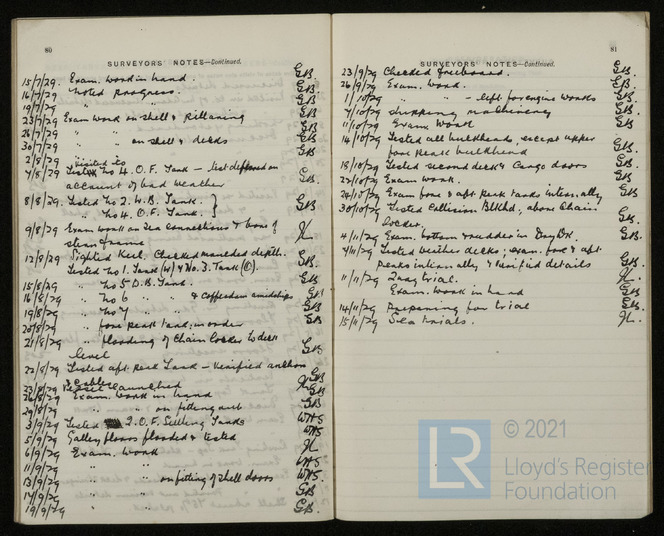 80
SURVEYORS' NOTES—Continued.
15/7/29. Exam. work in hand. GB.
16/7/29 Noted progress. GB.
19/7/29 " " GB
23/7/29 Exam work on shell & Pillaring GB
26/7/29 " " GB
30/7/29 " " on shell & decks GB
2/8/29 Visited to
7/8/29 No 4 O.F. Tank – test deferred on GB
account of bad weather
8/8/29 Tested No 2 W.B. Tank. GB
" No 4 O.F. Tank.
9/8/29 Exam work on Sea Connections & boss of JL
stern frame
12/8/29 Sighted Keel, Checked moulded depth. GB.
Tested No 1. Tank (W) & No. 3. Tank
15/8/29 " No 5 D.B. Tank. GB
16/8/29 " No 6 " & Cofferdam amidships GB
19/8/29 " No 7 " GB
20/8/29 " fore peak tank, in order GB
21/8/29 " flooding of Chain locker to deck GB
level
22/8/29 Tested aft. Peak Tank – Verified anchors
& Cables GB
23/8/29 Vessel launched JL
26/8/29 Exam. work in hand GB
29/8/29 " " on fitting out GB
3/9/29 Tested 2. O.F. Settling Tanks WHS
5/9/29 Galley floors flooded & tested WHS
6/9/29 Exam. work JL
11/9/29 " " WHS
13/9/29 " " on fitting of shell doors WHS.
17/9/29 " " GB
19/9/29 " " GB.
81
SURVEYORS' NOTES—Continued.
23/9/29 Checked freeboard. GB.
26/9/29 Exam. work. GB
1/10/29 " " – left for engine works GB
7/10/29 shipping machinery GB.
11/10/29 Exam work GB
14/10/29 Tested all bulkheads, except upper GB
fore peak bulkhead
18/10/29 Tested second deck & Cargo doors GB
22/10/29 Exam work. GB
24/10/29 Exam fore & aft peak tanks internally GB
30/10/29 Tested Collision Blkhd, above Chain
locker. GB
4/11/29 Exam. bottom & rudder in Dry Dk GB.
7/11/29 Tested weather decks; exam. fore & aft
peaks internally & verified details GB
11/11/29 Quay trial. JL.
Exam. work in hand GB
14/11/29 Preparing for trial GB.
15/11/29 Sea trials. JL.
LR
© 2021
Lloyd's Register
Foundation